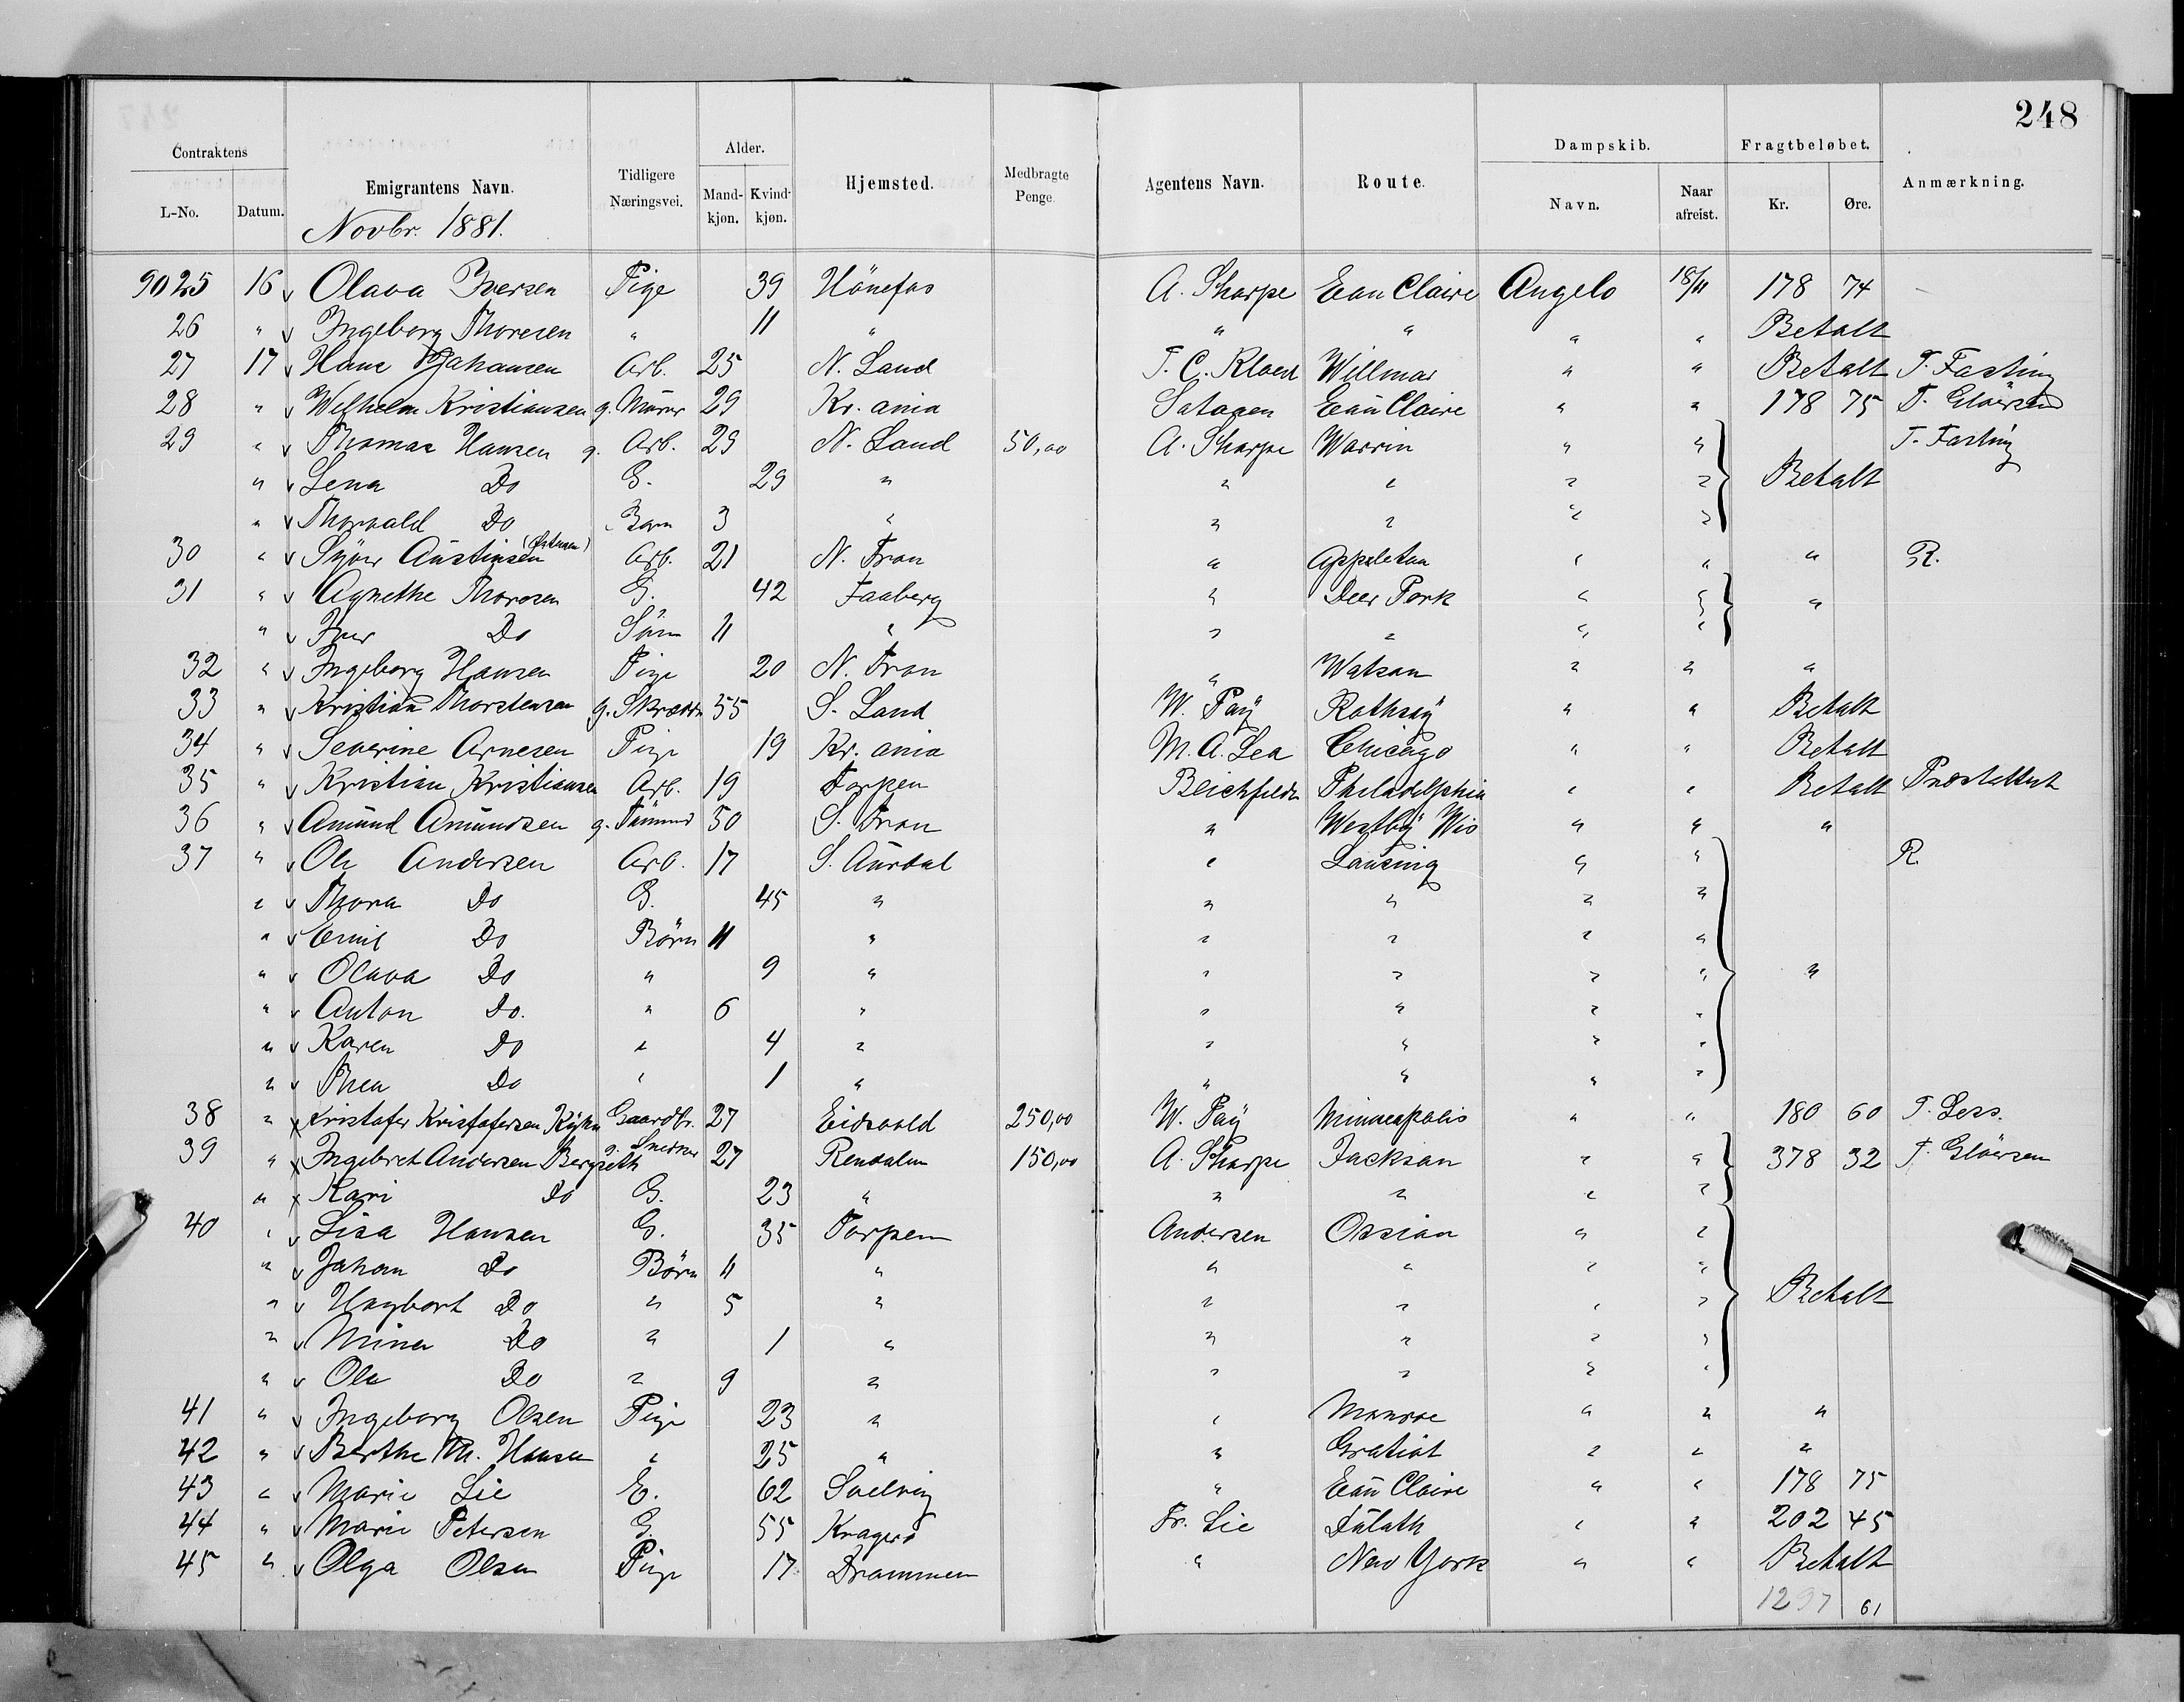 248
Contraktens Alder. Dampskib. Fragtbeløbet.
L-No. Datum. Emigrantens Navn. Tidligere Næringsvei. Mandkjøn. Kvindkjøn. Hjemsted. Medbragte Penge. Agentens Navn. Route. Navn. Naar afreist. Kr. Øre. Anmærkning.
Novbr. 1881.
9025 16 v Olava Iversen Pige 39 Hönefos A. Sharpe Eau Claire Angelo 18/11 178 74
26 " v Ingeborg Thoresen " 11 " " " " " Betalt
27 17 v Hans Johansen Arb. 25 N. Land T. C. Willmar " " Betalt T. Fasting
28 " v Wilhelm Kristiansen g. Murer 29 Kr.ania Eau Claire " " 178 75 T. Gloersen
29 " v Thomas Hansen g. Arb. 29 N. Land 50,00 A. Sharpe Warrin " " T. Fasting
" v Lena Do G. 29 " " " " " Betalt
" v Thorvald Do Barn 3 " " " " "
30 " v Syver Austinsen Arb. 21 N. Fron " Appleton " " " R.
31 " v Agnethe Thoresen G. 42 Faaberg " Deer Park " " "
" v Iver Do Sön 11 " " " " "
32 " v Ingeborg Hansen Pige 20 N. Fron " Watson " " "
33 " v Kristian Thorstensen g. Skrædder 55 S. Land W. Pay Rothsay " " Betalt
34 " v Severine Arnesen Pige 19 Kr.ania M. A. Lea Chicago " " Betalt
35 " v Kristian Kristiansen Arb. 19 Torpen Blichfeldt Philadelphia " " Betalt
36 " v Amund Amundsen g. Tömmer 50 S. Fron " Westby Wis " " "
37 " v Ole Andersen Arb. 17 S. Aurdal " Lansing " " R
" v Thora Do G. 45 " " " " "
" v Emil Do Börn 11 " " " " "
" v Olava Do " 9 " " " " " "
" v Anton Do. " 6 " " " " "
" v Karen Do " 4 " " " " "
" v Thea Do " 1 " " " " "
38 " x Kristofer Kristofersen Gaardbr. 27 Eidsvold 250,00 W. Pay Minneapolis " " 180 60 T. Less.
39 " x Ingebret Andersen Bergseth g. Snedker 27 Rendalen 150,00 A. Sharpe Jackson " " 378 32 T. Gloersen
" x Kari Do G. 23 " " " " "
40 " v Lisa Hansen G. 35 Torpen Andersen Ossian " "
" v Johan Do Börn 11 " " " " "
" v Hagbart Do " 5 " " " " " Betalt
" v Mina Do " 1 " " " " "
" v Ole Do " 9 " " " " "
41 " v Ingeborg Olsen Pige 23 " " Monroe " " "
42 " v Berthe M. Hansen " 25 " " Gratiot " " "
43 " v Marie Lie E. 62 Soelvig " Eau Claire " " 178 75
44 " v Marie Petersen G. 55 Kragerö Fr. Lie Duluth " " 202 45
45 " v Olga Olsen Pige 17 Drammen " New York " " Betalt
1297 61